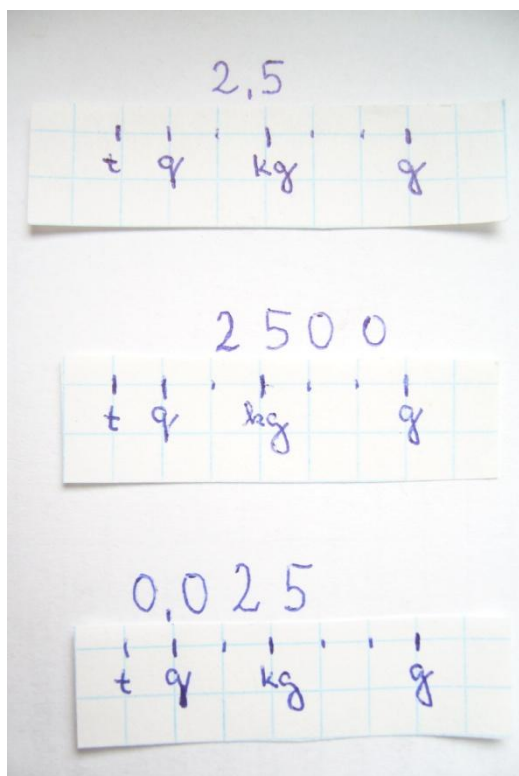 2,5
t q kg g
2500
t q kg g
0,025
t q kg g